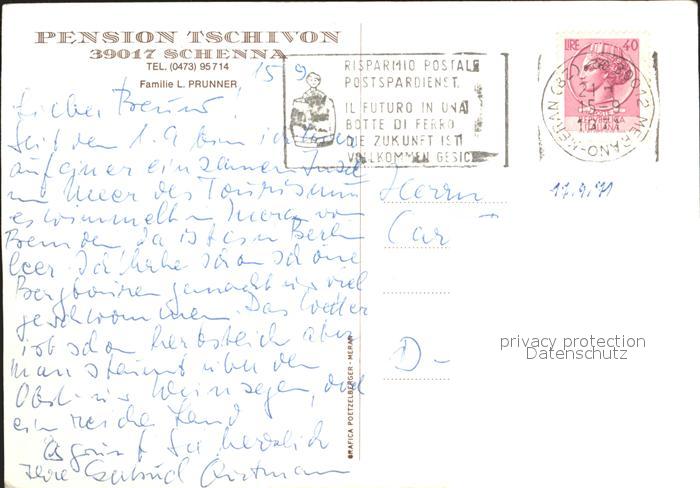 PENSION TSCHIVON
39017 SCHENNA
TEL. (0473) 95714
Familie L. PRUNNER
15 9
Lieber Freund!
Seit dem 1.9 bin ich
auf einer einsamen Insel
im Meer des Tourismus
es wimmelt in Meran von
Fremden da ist Berlin
leer. Ich habe schon schöne
Bergtouren gemacht u. viel
geschwommen. Das Wetter
ist schon herbstlich aber
man staunt über den
Obst- u. Weinsegen,
ein reiches Land
Es grüßt Sie herzlich
Ihre Gertrud
RISPARMIO POSTALE
POSTSPARDIENST.
IL FUTURO IN UNA
BOTTE DI FERRO
DIE ZUKUNFT IST
VOLLKOMMEN GESIC
LIRE 40
REPUBBLICA
ITALIANA
MERANO-MERAN (BZ)
15 9
17.9.71
Herrn
Car
D-
privacy protection
Datenschutz
GRAFICA POETZELBERGER - MERAN